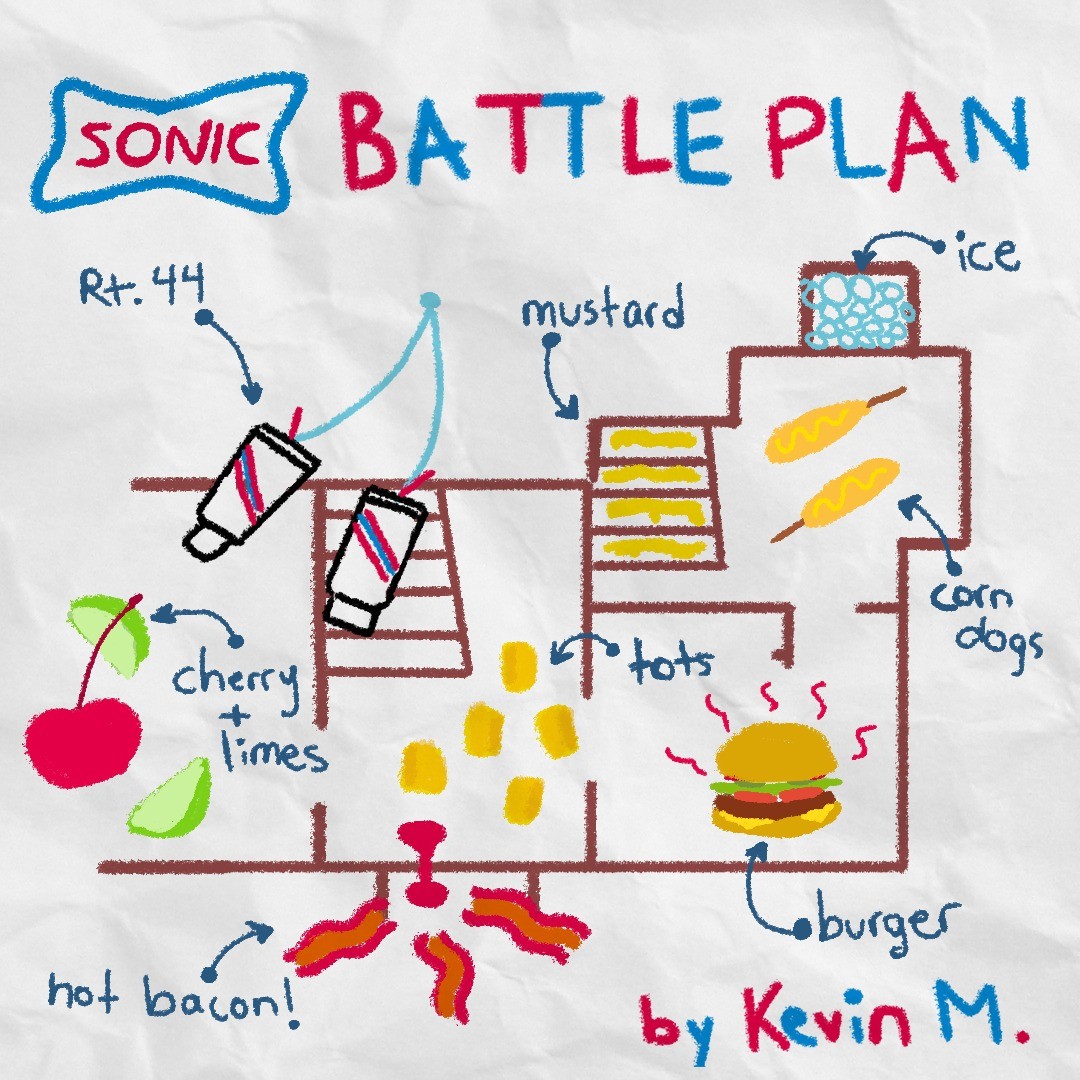 SONIC BATTLE PLAN
ice
Rt. 44
mustard
corn
dogs
tots
cherry
+
limes
burger
hot bacon!
by Kevin M.